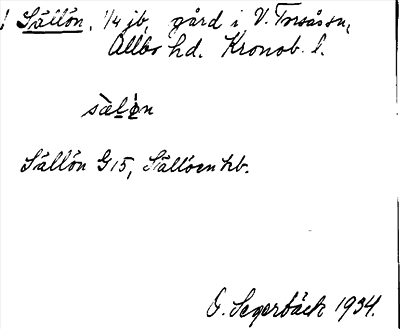 ! Sällön, 1/4 jb, gård i V. Torsås sn,
Allbo hd. Kronob. l.
sàlø̀n
Sällön G15, Sällöen hb.
G. Segerbäck 1934.